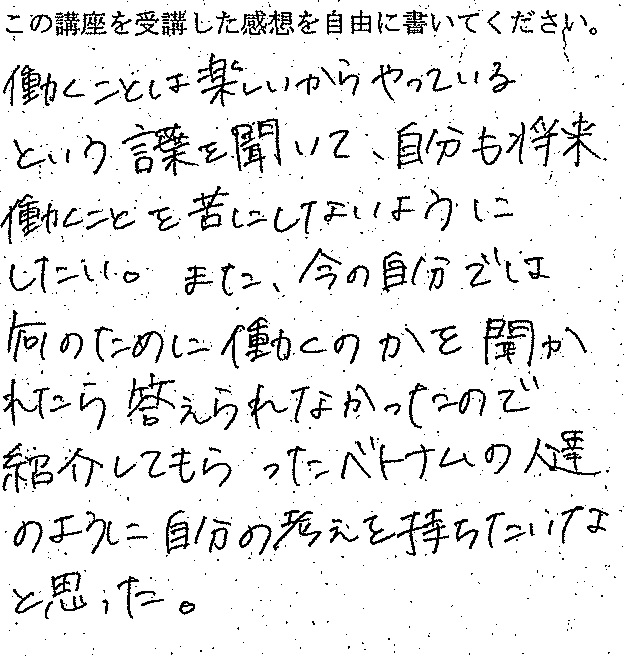 この講座を受講した感想を自由に書いてください。
働くことは楽しいからやっている
という言葉を聞いて、自分も将来
働くことを苦にしないように
したい。また、今の自分では
何のために働くのかを聞か
れたら答えられなかったので
紹介してもらったベトナムの人達
のように自分の考えを持ちたいな
と思った。